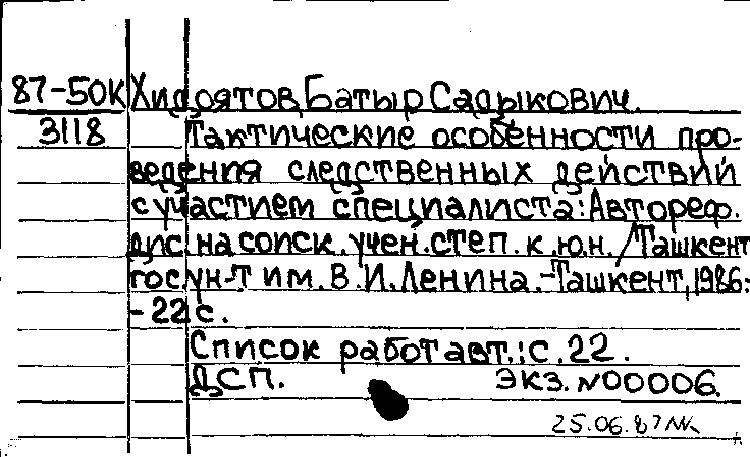 87-50К Хидоятов, Батыр Садыкович.
3118 Тактические особенности про-
ведения следственных действий
с участием специалиста: Автореф.
дис. на соиск. учен. степ. к.ю.н. / Ташкент
гос. ун-т им. В.И. Ленина. - Ташкент, 1986.
- 22 с.
Список работ авт.: с. 22.
ДСП. экз. N00006.
25.06.87